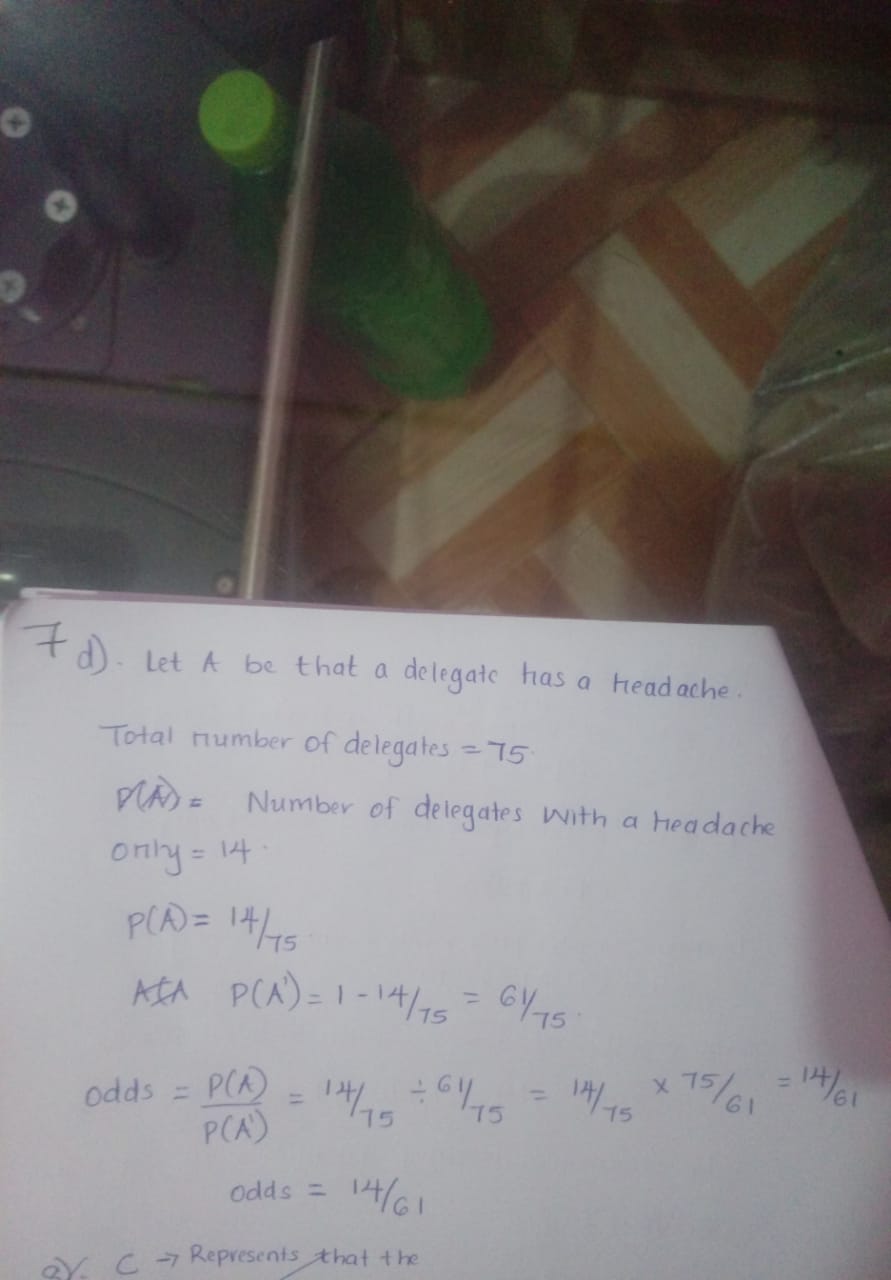 7 d). Let A be that a delegate has a headache.
Total number of delegates = 75.
P(A) = Number of delegates with a headache
only = 14.
P(A) = 14/75
P(A') = 1 - 14/75 = 61/75.
odds = P(A)/P(A') = 14/75 ÷ 61/75 = 14/75 x 75/61 = 14/61
odds = 14/61
a). C → Represents that the